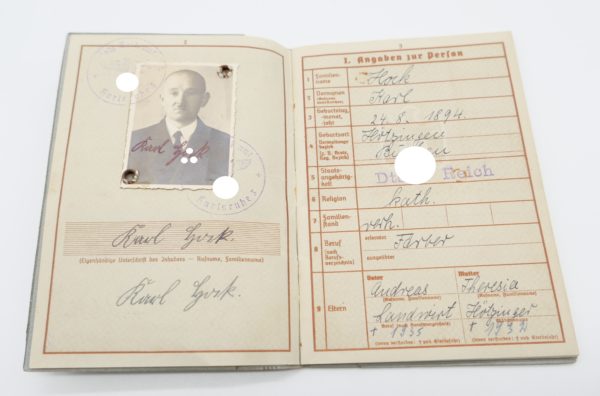 2
Karlsruhe 2
Karl Hock
Karlsruhe 2
Karl Hock.
(Eigenhändige Unterschrift des Inhabers — Rufname, Familienname)
Karl Hock.
3
I. Angaben zur Person
1 Familien-
name
Hock
2 Vornamen
(Rufname
unterstreichen)
Karl
3 Geburtstag,
-monat,
-jahr
24. 8. 1894.
4 Geburtsort
Verwaltungs-
bezirk
(z. B. Kreis,
Reg. Bezirk)
Hötzingen
5 Staats-
angehörig-
keit
Reich
6 Religion
kath.
7 Familien-
stand
verh.
8 Beruf
(nach
Berufs-
verzeichnis)
erlernter
Färber
ausgeübter
9 Eltern
Vater
Mutter
Andreas
Theresia
(Rufname, Familienname)
(Rufname, Familienname)
Landwirt
† 1935
† 1932
(wenn verstorben: † und Sterbejahr)
(wenn verstorben: † und Sterbejahr)